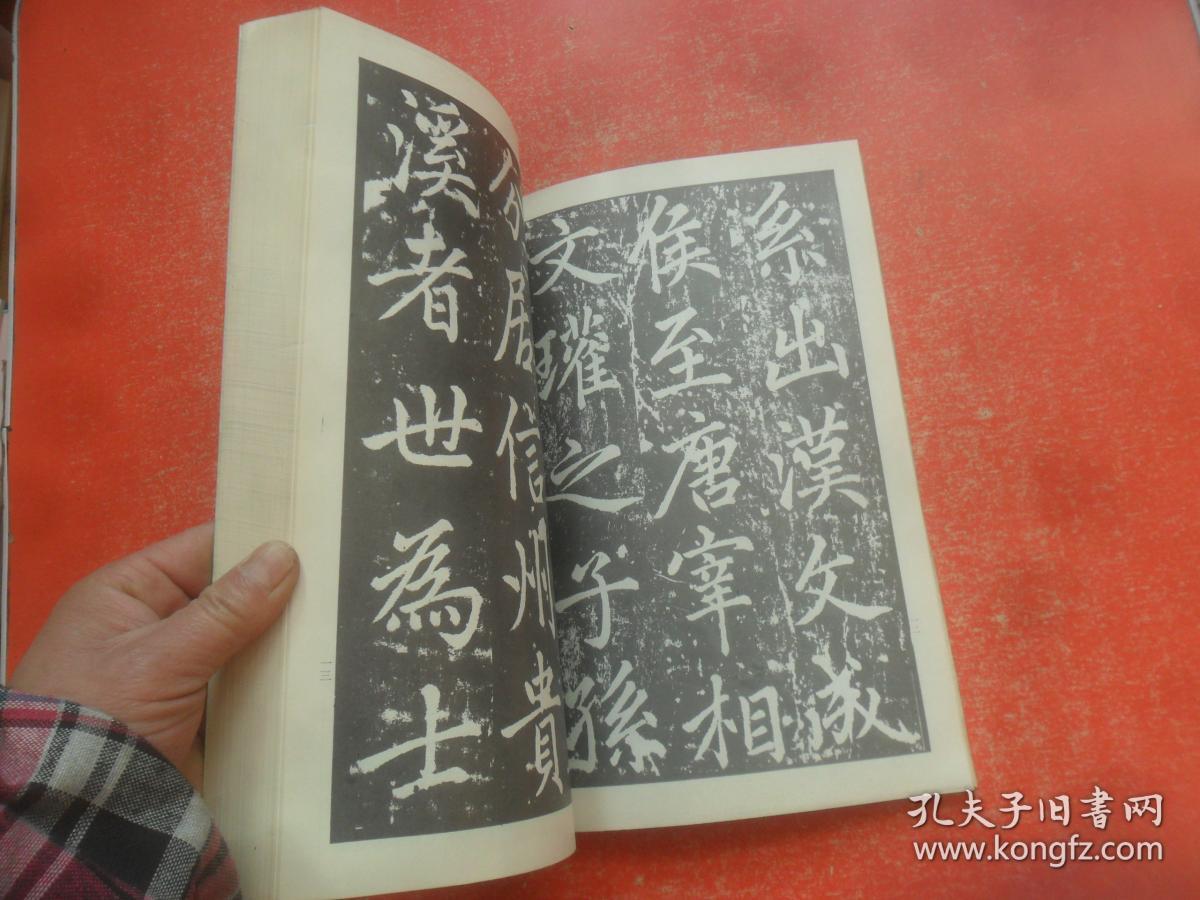 系出漢文成
侯至唐宰相
文瓘之子孫
分居信州貴
溪者世為士
一三
孔夫子旧书网
www.kongfz.com